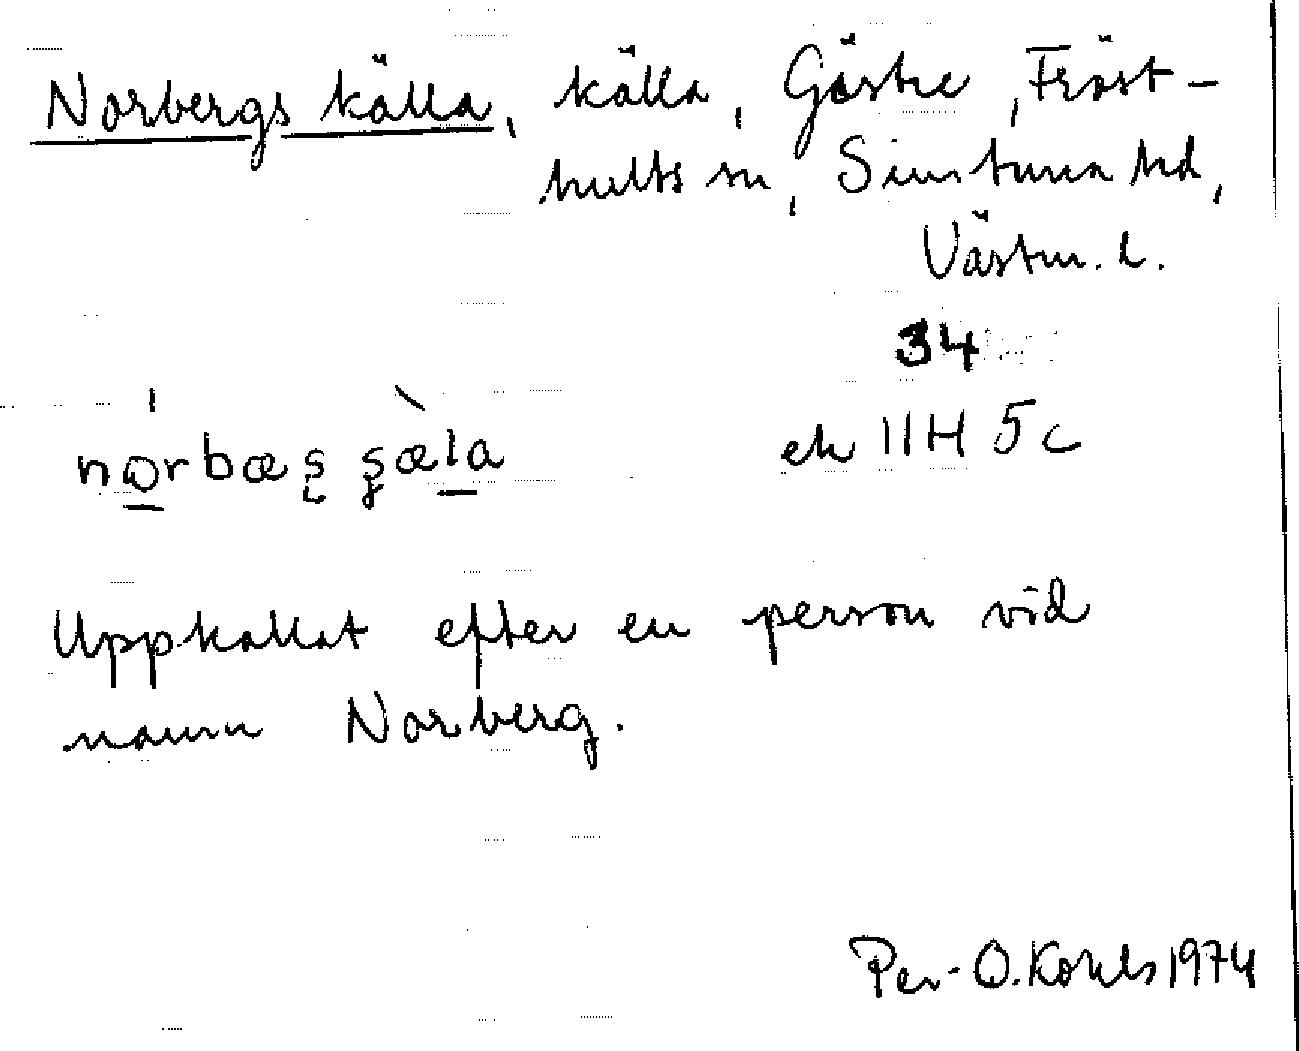 Norbergs källa, källa, Gäske, Fröst-
hults sn, Simtuna hd,
Västm. l.
34
ek 11H 5c
Uppkallat efter en person vid
namn Norberg.
Per-O. 1974